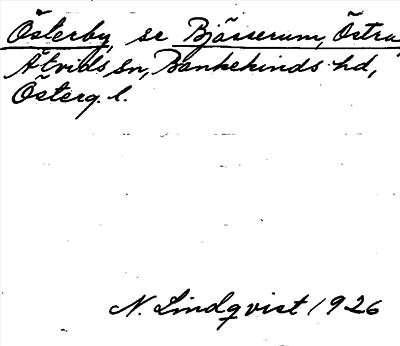 Österby, se Bjässerum, Östra
Åtvids sn, Bankekinds hd,
Österg. l.
N. Lindqvist 1926